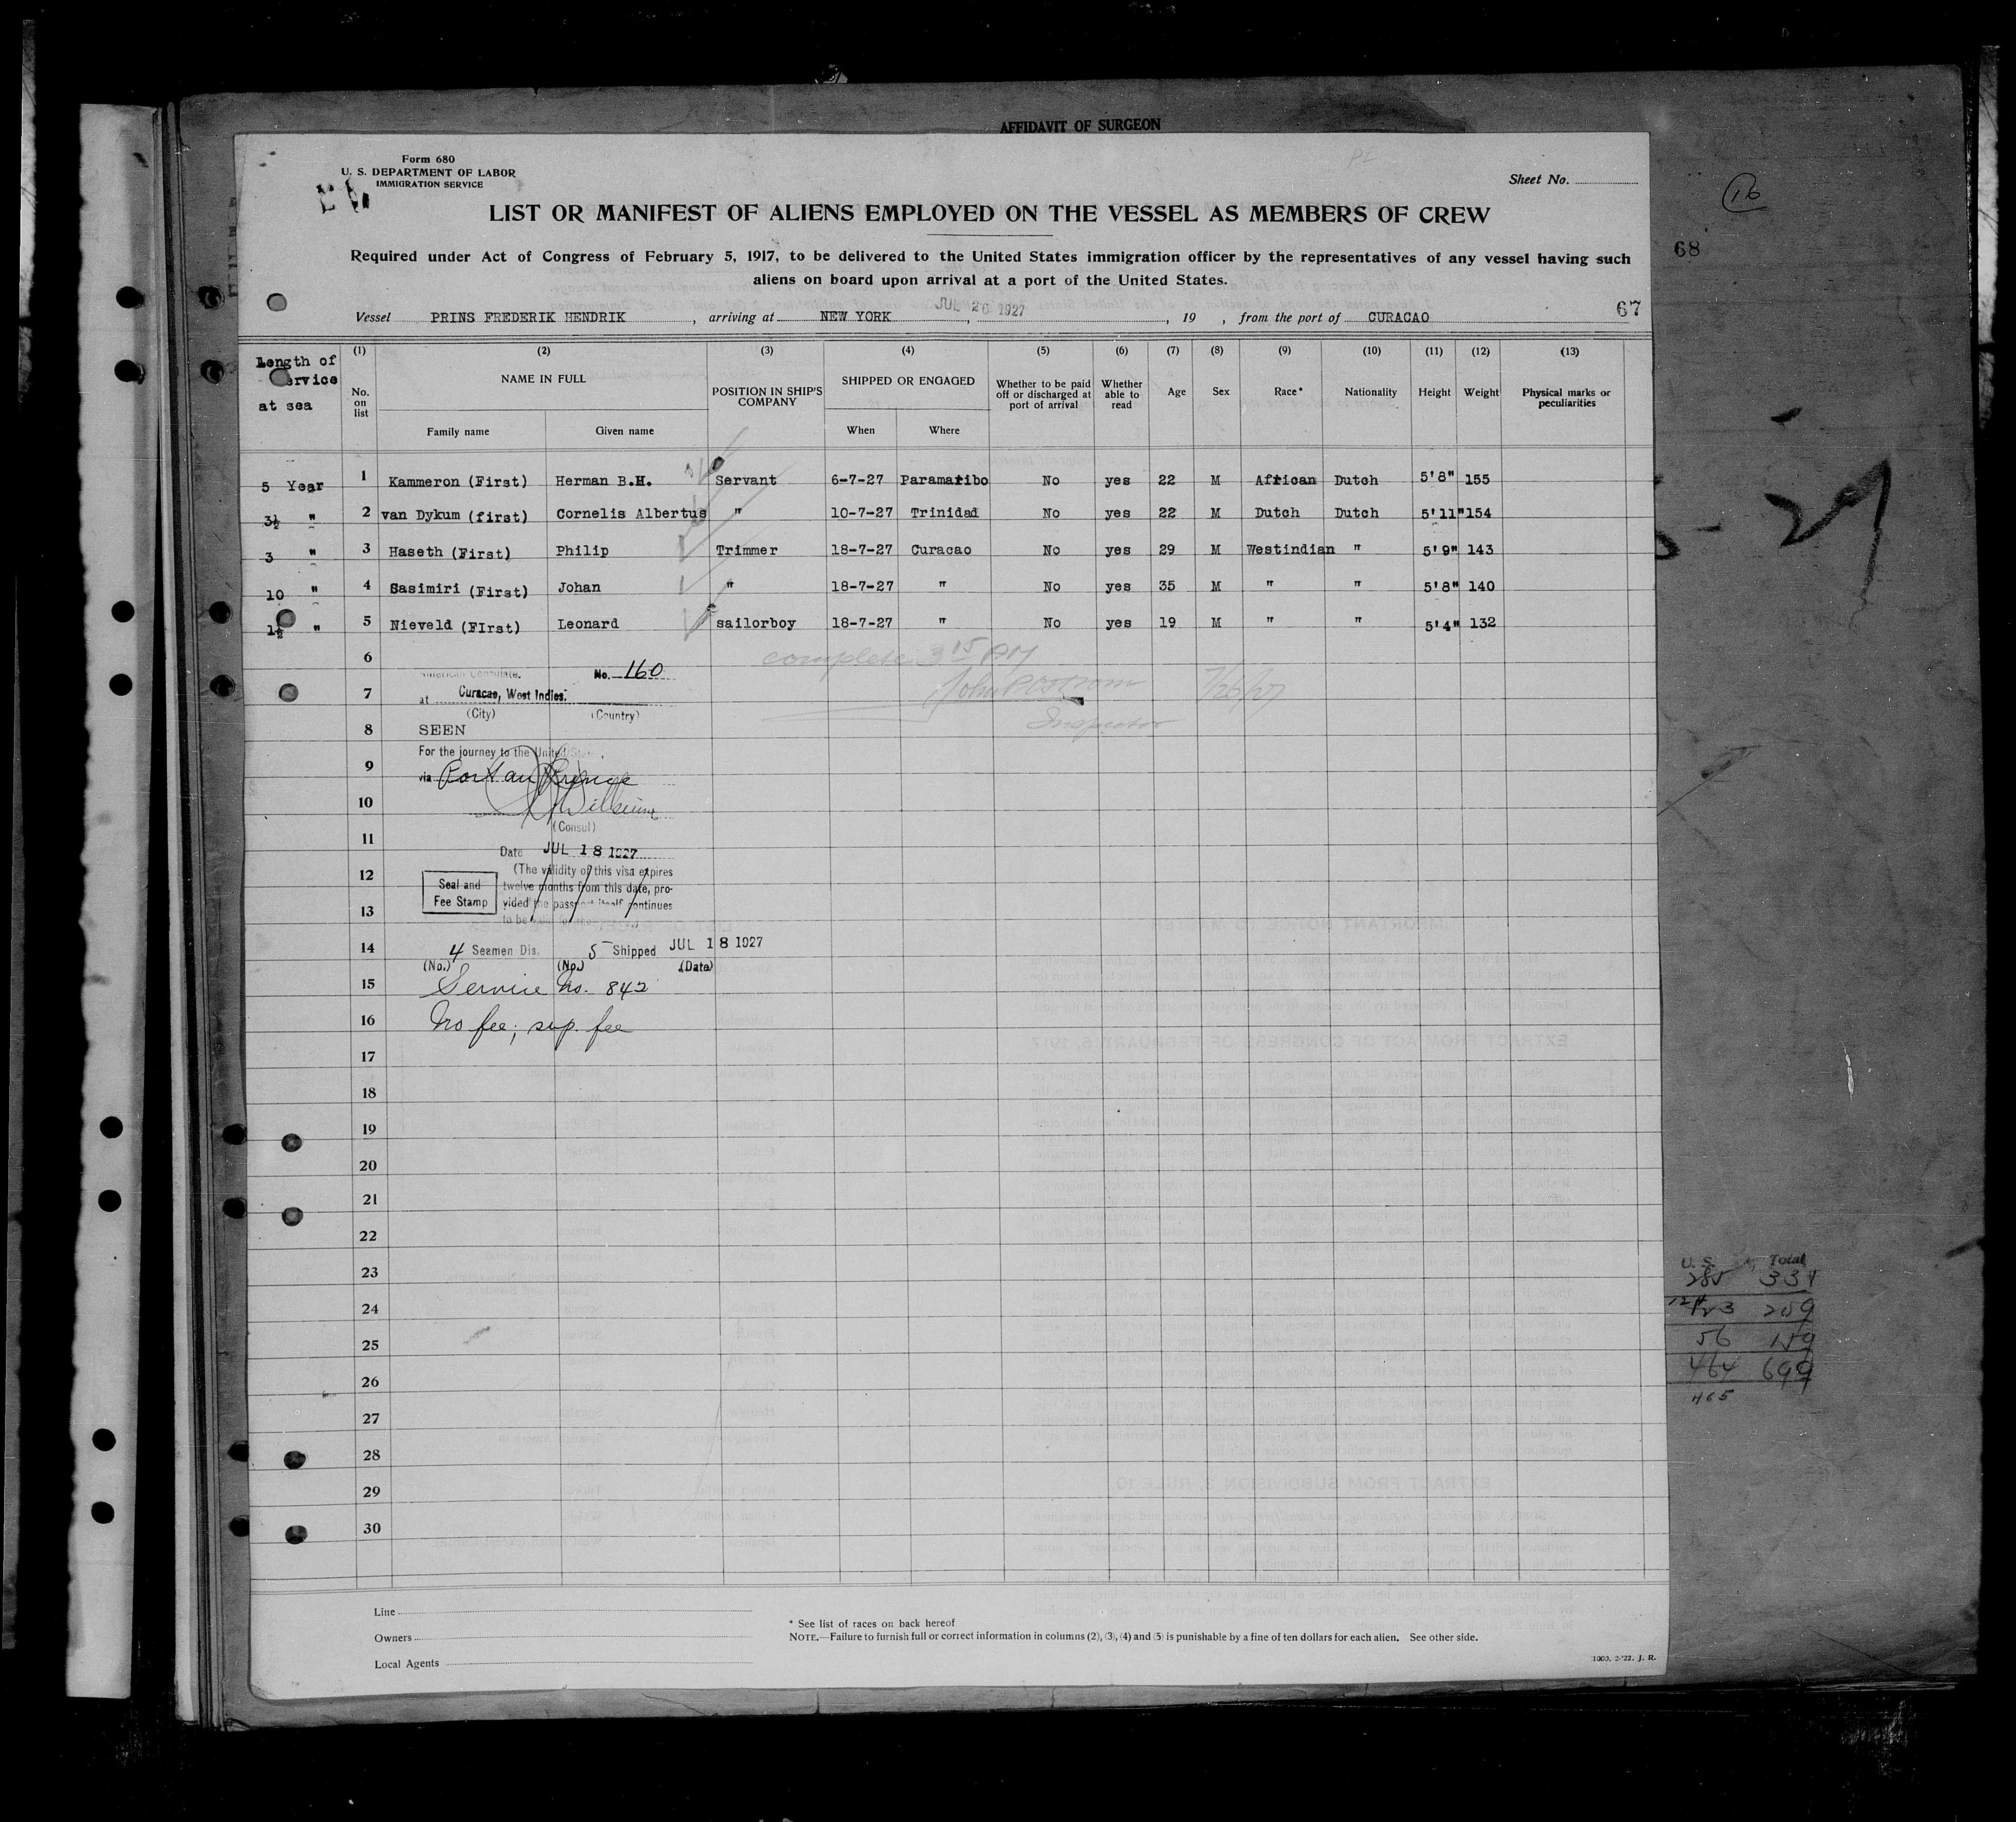 AFFIDAVIT OF SURGEON
16
68
Form 680
U. S. DEPARTMENT OF LABOR
IMMIGRATION SERVICE
Sheet No.
LIST OR MANIFEST OF ALIENS EMPLOYED ON THE VESSEL AS MEMBERS OF CREW
Required under Act of Congress of February 5, 1917, to be delivered to the United States immigration officer by the representatives of any vessel having such
aliens on board upon arrival at a port of the United States.
Vessel PRINS FREDERIK HENDRIK, arriving at NEW YORK, JUL 26 1927, 19 , from the port of CURACAO 67
Length of service at sea (1) No. on list (2) NAME IN FULL Family name Given name (3) POSITION IN SHIP'S COMPANY (4) SHIPPED OR ENGAGED When Where (5) Whether to be paid off or discharged at port of arrival (6) Whether able to read (7) Age (8) Sex (9) Race* (10) Nationality (11) Height (12) Weight (13) Physical marks or peculiarities
5 Year 1 Kammeron (First) Herman B.H. Servant 6-7-27 Paramaribo No yes 22 M African Dutch 5'8" 155
3½ " 2 van Dykum (first) Cornelis Albertus " 10-7-27 Trinidad No yes 22 M Dutch Dutch 5'11" 154
3 " 3 Haseth (First) Philip Trimmer 18-7-27 Curacao No yes 29 M Westindian " 5'9" 143
10 " 4 Sasimiri (First) Johan " 18-7-27 " No yes 35 M " " 5'8" 140
1½ " 5 Nieveld (FIrst) Leonard sailorboy 18-7-27 " No yes 19 M " " 5'4" 132
6
complete 3 15 PM
American Consulate. No. 160
7
at Curacao, West Indies.
7/26/27
(City) (Country)
Inspector
8 SEEN
For the journey to the United States
9
via Port au Prince
10
(Consul)
11
Date JUL 18 1927
12 (The validity of this visa expires
Seal and Fee Stamp
twelve months from this date, pro-
13 vided the passport itself continues
to be valid for
14 4 Seamen Dis. 5 Shipped JUL 18 1927
(No.) (No.) (Date)
15 Service No. 842
16 No fee; sup. fee
17
18
19
20
21
22
23
24
25
26
27
28
29
30
U. S. Total
285 334
123 209
56 159
464 699
465
Line
Owners
Local Agents
* See list of races on back hereof
NOTE.—Failure to furnish full or correct information in columns (2), (3), (4) and (5) is punishable by a fine of ten dollars for each alien. See other side.
1000. 2-'22. J. R.